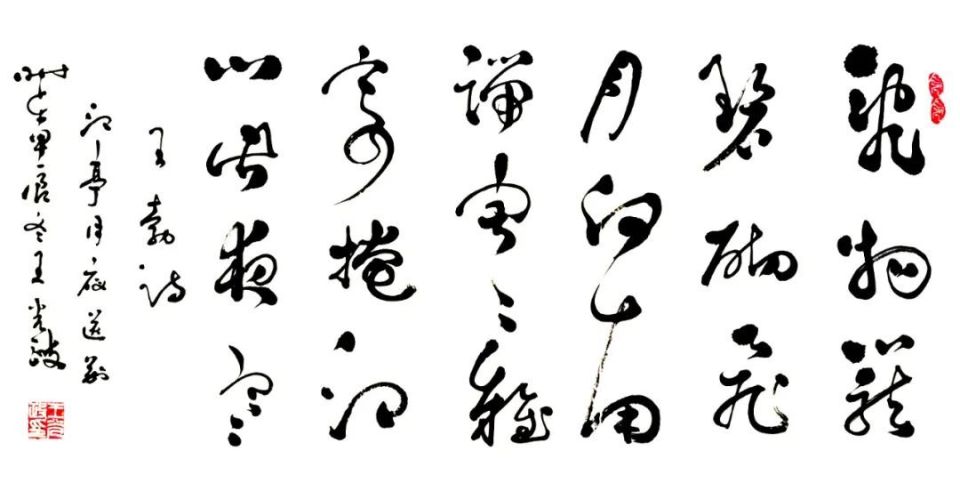 乱烟笼
碧砌飞
月向南
端寂々離
亭掩江
山此夜寒
王勃诗
江亭月夜送别
时在甲辰冬王